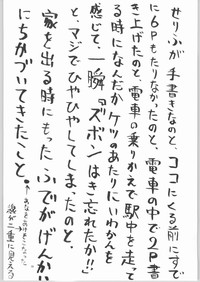 せりふが手書きなのと、ココにくる前にすで
に6Pもたりなかったのと、電車の中で2P書
き上げたのと、電車の乗りかえで駅中を走って
る時になんだかケツのあたりにいわかんを
感じて、一瞬『ズボンはき忘れたか!!』
と、マジでひやひやしてしまったのと、
家を出る時にもった ふでがげんかい
にちかづいてきたこと。
線が二重に見えるっ